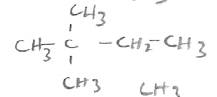 CH3
CH3 C - CH2 - CH3
CH3 CH2